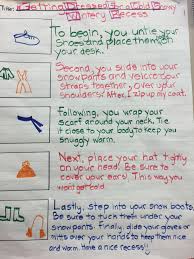 Title: Getting Dressed for a Cold Snowy
Wintery Recess
To begin, you untie your
shoes and place them on
your desk.
Second, you slide into your
snowpants and velcro your
straps together, over your
shoulders. After, I zip my coat.
Following, you wrap your
scarf around your neck. Tie
it close to your body to keep you
snuggly warm.
Next, place your hat tightly
on your head. Be sure to
cover your ears. This way you
won't get cold.
Lastly, step into your snow boots.
Be sure to tuck them under your
snowpants. Finally, slide your gloves or
mitts over your hands to keep them nice
and warm. Have a nice recess!!